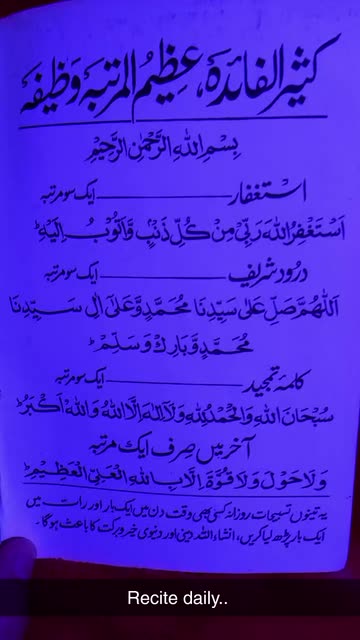 کثیر الفائدہ، عظیم المرتبہ وظیفہ
بِسْمِ اللهِ الرَّحْمٰنِ الرَّحِيْمِ
استغفار ـــــــ ایک سو مرتبہ
اَسْتَغْفِرُ اللهَ رَبِّيْ مِنْ كُلِّ ذَنْۢبٍ وَّاَتُوْبُ اِلَيْهِ ؕ
درود شریف ـــــــ ایک سو مرتبہ
اَللّٰهُمَّ صَلِّ عَلٰى سَيِّدِنَا مُحَمَّدٍ وَّعَلٰٓى اٰلِ سَيِّدِنَا
مُحَمَّدٍ وَّبَارِكْ وَسَلِّمْ ؕ
کلمۂ تمجید ـــــــ ایک سو مرتبہ
سُبْحَانَ اللهِ وَالْحَمْدُ لِلّٰهِ وَلَآ اِلٰهَ اِلَّا اللهُ وَاللهُ اَكْبَرُ ؕ
آخر میں صرف ایک مرتبہ
وَلَا حَوْلَ وَلَا قُوَّةَ اِلَّا بِاللهِ الْعَلِيِّ الْعَظِيْمِ ؕ
یہ تینوں تسبیحات روزانہ کسی بھی وقت دن میں ایک بار اور رات میں
ایک بار پڑھ لیا کریں، انشاءاللہ دینی اور دنیوی خیر و برکت کا باعث ہوگا۔
Recite daily..